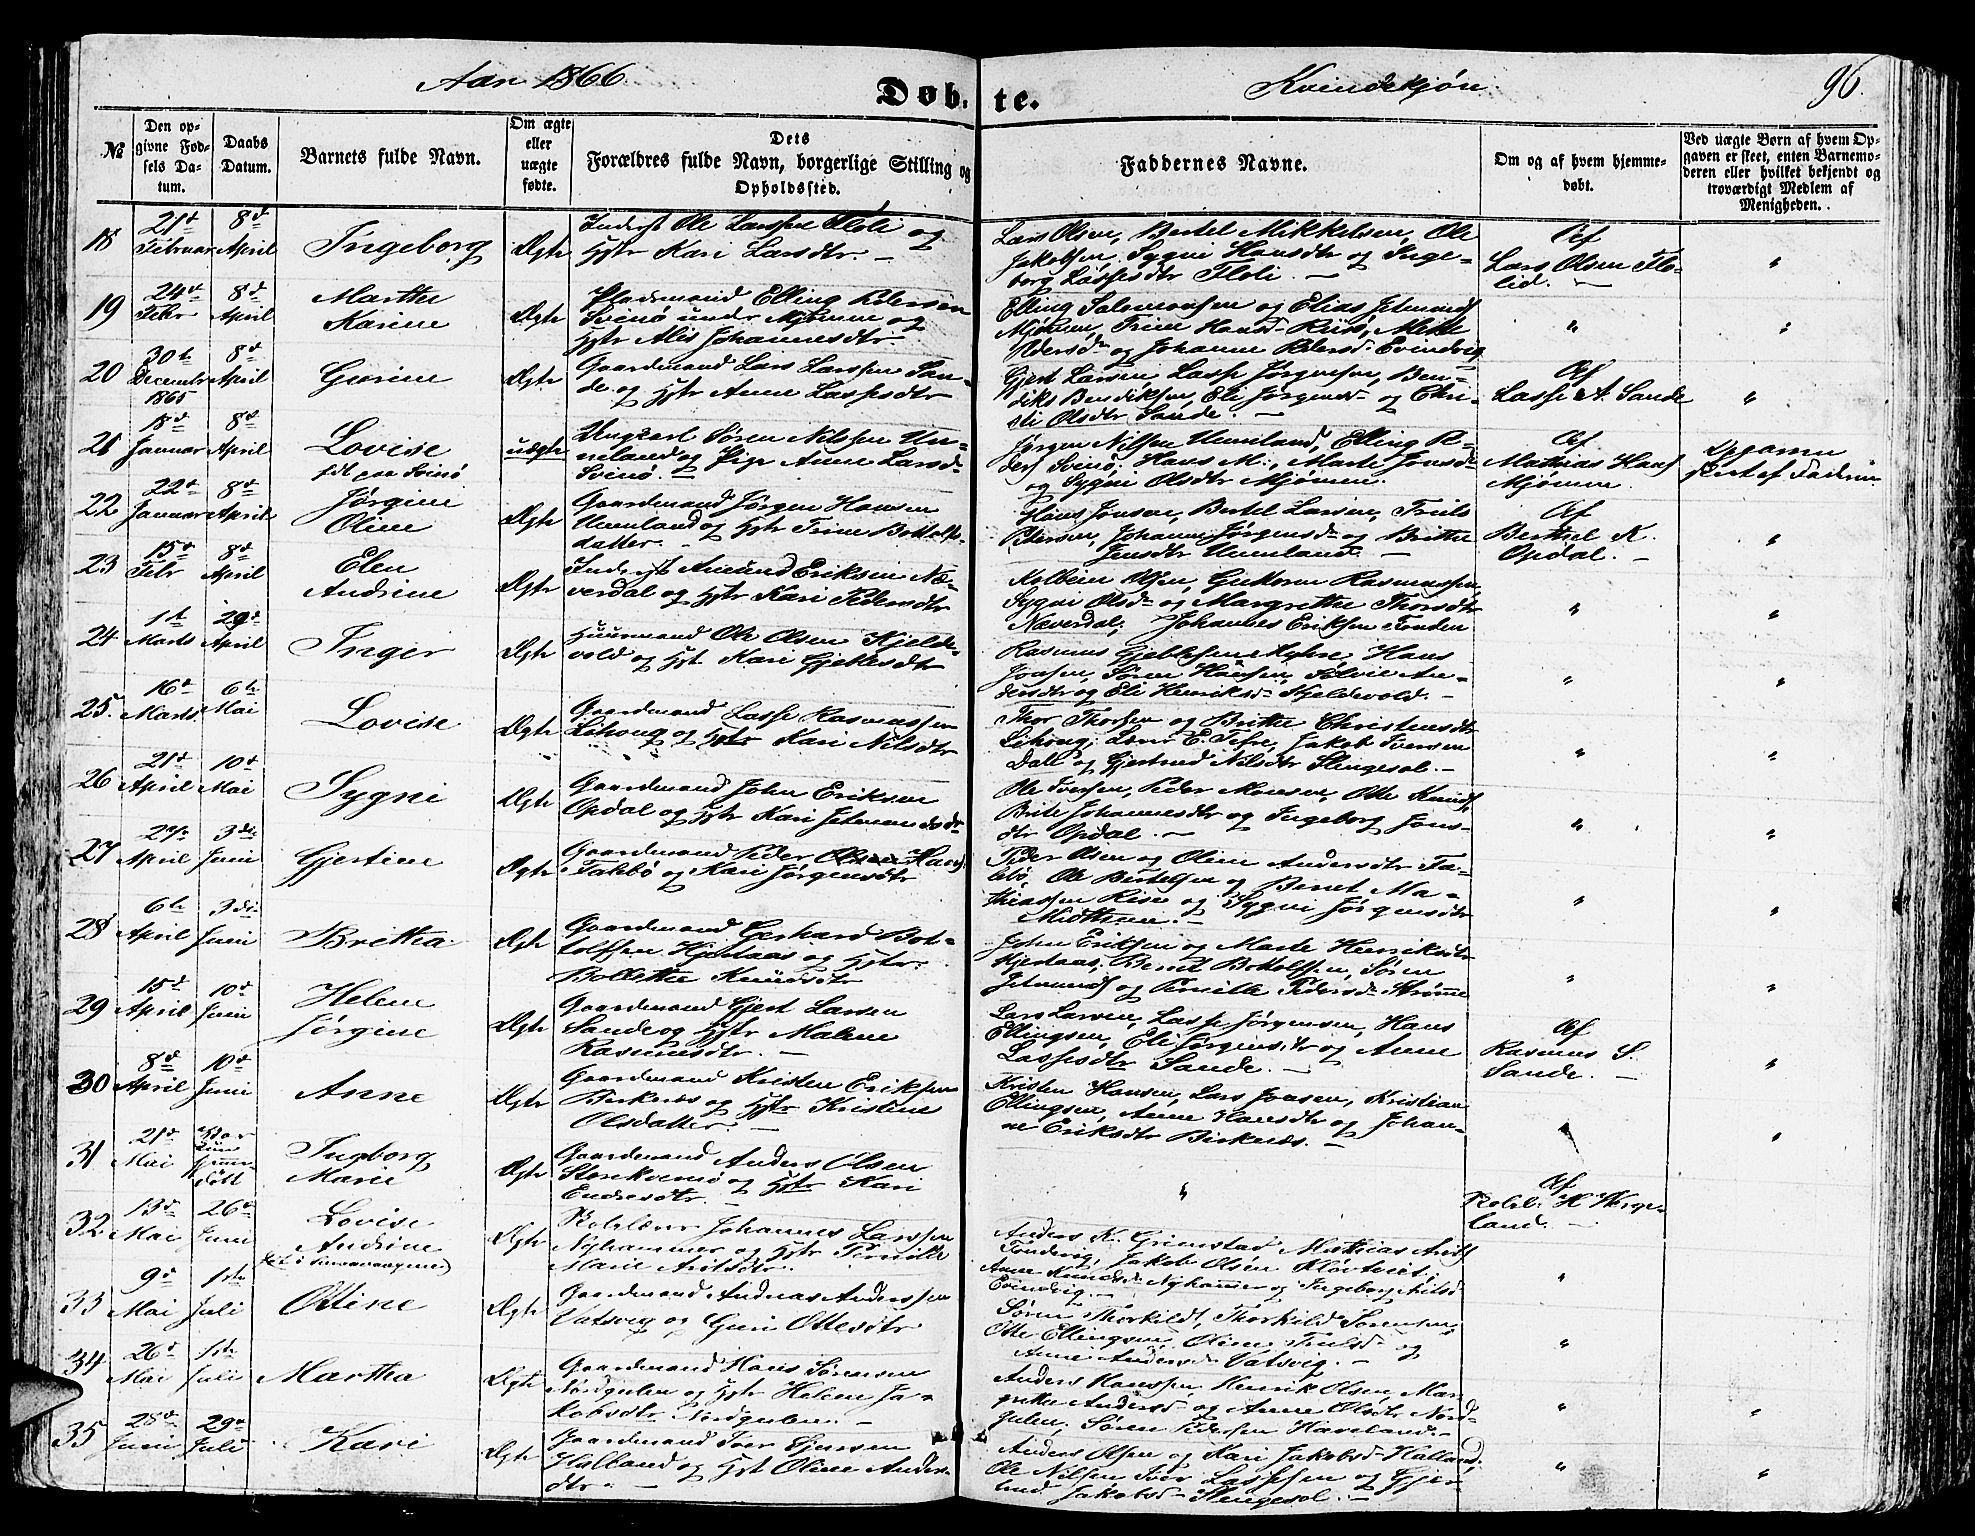 Aar 1866.
Døb-te.
Kvindekjøn.
96.
No
Den opgivne Fødsels Datum.
Daabs Datum.
Barnets fulde Navn.
Om ægte eller uægte fødte.
Dets Forældres fulde Navn, borgerlige Stilling og Opholdssted.
Faddernes Navne.
Om og af hvem hjemmedøbt.
Ved uægte Børn af hvem Opgaven er skeet, enten Barnemoderen eller hvilket bekjendt og troværdigt Medlem af Menigheden.
18
21de Februar
8de April
Ingeborg
Ægte
Inderst Ole Larssen Floli og
Hstr Kari Larsdtr. —
Lars Olsen, Bertel Mikkelsen, Ole
Jakobsen, Sygni Hansdtr og Inge-
borg Lassesdtr Floli. —
Af
Lars Olsen Flo-
lid. —
"
19
24de Febr
8de April
Marthe
Karine
Ægte
Pladsmand Elling Pedersen
Svinø under Mjømen og
Hstr Alis Johannesdtr
Elling Salomonsen og Elias Jetmunds
Mjømen, Trine Hansd Riisø, Mette
Pedersd og Johanne Pedersd Evindvig
"
"
20
30te December 1865
8de April
Gurine
Ægte
Gaardmand Lars Larssen San-
de og Hstr Anne Lassesdtr
Gjert Larsen, Lasse Jørgensen, Ben-
diks Bendiksen, Eli Jørgensd og Chri-
sti Olsdtr Sande. —
Af
Lasse A. Sande
"
21
18de Januar
8de April
Lovise
født paa Svinø
uægte
Ungkarl Søren Nilssen Un-
neland og Pige Anne Larsd
Svinø. —
Jørgen Nilsen Unneland, Elling P-
ders Svinø, Hans M., Marte Jonsd
og Sygni Olsdtr Mjømen.
Af
Mathias Hans
Mjømen.
Opgaven
skeet af Faderen
22
22de Januar
8de April
Jørgine
Oline
Ægte
Gaardmand Jørgen Hansen
Unneland og Hstr Trine Bottolfs-
datter. —
Hans Jonsen, Bertel Larsen, Truls
Pdersen, Johanne Jørgensd og Britte
Jensdtr Unneland. —
Af
Berthel K.
Opdal. —
"
23
15de Febr
8de April
Elen
Andrine
Ægte
Inderst Amund Eriksen Næ-
verdal og Hstr Kari Pedersdtr
Kolbein Olsen, Guttorm Rasmussen,
Sygni Olsd og Margrethe Thorsdtr
Næverdal, Johannes Eriksen Tonden
"
"
24
1ste Marts
29de April
Inger
Ægte
Huusmand Ole Olsen Kjelde-
vold og Hst. Kari Gjettesdtr
Rasmus Gjettesen Myhre, Hans
Jonsen, Søren Hansen, Sølvie An-
dersdtr og Eli Henriksd Kjeldevold. —
"
"
25.
16de Marts
6te Mai
Lovise
Ægte
Gaardmand Lasse Rasmussen
Lihoug og Hstr Kari Nilsdtr
Thor Thorsen og Britte Christensdtr
Lihoug, Lærer E. Tefre, Jakob Iversen
Dall og Gjertrud Nilsdtr Slengesol. —
"
"
26
21de April
10de Mai
Sygni
Ægte
Gaardmand John Eriksen
Opdal og Hstr Kari Jetmundsdtr
Ole Iversen, Peder Monsen, Otte Knuds
Brite Johannesdtr og Ingeborg Jons-
dtr Opdal. —
"
"
27
April
3die Juni
Gjertine
Ægte
Gaardmand Peder Hans
Takbø og Kari Jørgensdtr
Peder Olsen og Oline Andersdtr Ta-
kbø, Ole Bertelsen og Bernt Ma-
thiassen Risnæs og Sygni Jørgensdtr
"
"
28
6te April
3die Juni
Britha.
Ægte
Gaardmand Gerhard Bot-
tolfsen Hjertaas og Hstr.
Bollette Knudsdtr
John Eriksen og Marte Henriksdtr
Hjertaas, Bernt Bottolfssen, Søren
Jetmunds og Pernille Pedersd Strømme
"
"
29
15de April
10de Juni
Helene
Jørgine
Ægte
Gaardmand Gjert Larsen
Sande og Hstr Malene
Rasmusdtr. —
Lars Larsen, Lasse Jørgensen, Hans
Ellingsen, Eli Jørgensdtr og Anne
Lassesdtr Sande. —
Af
Rasmus S.
Sande. —
"
30
8de April
10de Juni
Anne
Ægte
Gaardmand Kristen Eriksen
Birknes og Hstr Kristine
Olsdatter. —
Kristen Hansen, Lars Jonsen, Kristian
Ellingsen, Anne Hansdtr og Johan-
ne Eriksdtr Birknes. —
"
"
31
21de Mai
Bar
Kun
hjemme
døbt
Ingeborg
Marie
Ægte
Gaardmand Anders Olsen
Storekvernø og Hstr Kari
Endresdtr. —
"
Af
Kirkes. H Herge-
land. —
32
13de Mai
26de Juni
Lovise
Andrine
Ægte
Johannes Larssen
Nyhammer og Hstr Pernille
Marie Arilsdtr.
Anders K. Grimstad Mathias Arils
Tondevig, Jakob Olsen Kløvtveit,
Anne Knudsd Nyhammer og Ingeborg Arilsd
Evindvig. —
"
33
9de Mai
1ste Juli
Ottine
Ægte
Gaardmand Andreas Anderssen
Vatsvig og Guri Ottesdtr
Søren Thorkilds, Thorkild Sørensen,
Otte Ellingsen, Oline Trulsd og
Anne Andersd Vatsvig. —
"
34
26de Mai
1ste Juli
Martha
Ægte
Gaardmand Hans Sørensen
Nordgulen og Hstr Helene Ja-
kobsdtr Nordgulen. —
Anders Hanssen, Henrik Olsen, Mar-
grethe Andersd og Anne Olsdtr Nord-
gulen, Søren Pedersen Haveland. —
"
"
35
28de Juni
29de Juli
Kari
Ægte
Gaardmand Iver Iversen
Halland og Hst Oline Anders-
dtr. —
Anders Olsen og Kari Jakobsd Halland,
Ole Nilsen Iver Lassesen og Gjer-
trud Jakobsd Slengesol. —
"
"